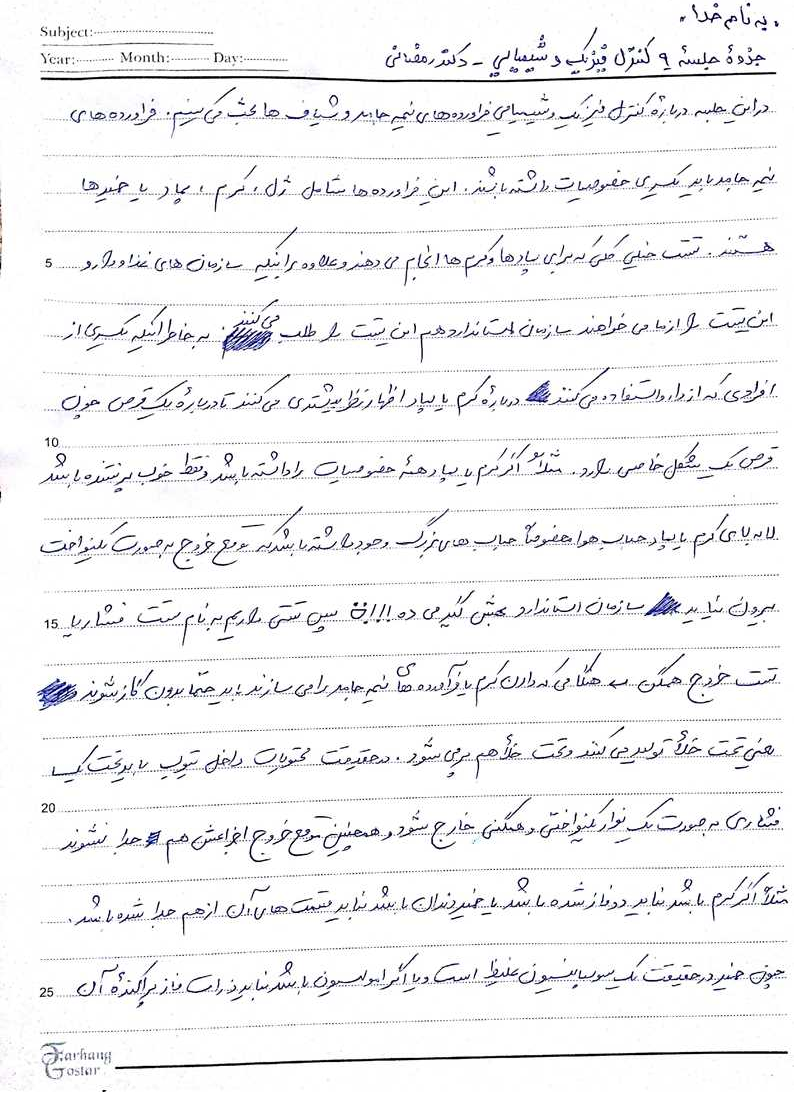 به نام خدا
Subject:
Year: Month: Day:
جزوهٔ جلسهٔ ۹ کنترل فیزیک و شیمیایی - دکتر رمضانی
در این جلسه دربارهٔ کنترل فیزیک و شیمیایی فراورده‌های نیمه جامد و شیاف ها بحث می کنیم. فراورده های
نیمه جامد باید یکسری خصوصیات داشته باشند. این فراورده ها شامل ژل، کرم، پماد یا خمیرها
5 هستند. تست خیلی کلی که برای پمادها و کرم ها انجام می دهند و علاوه بر اینکه سازمان های غذا و دارو
این تست را از ما می خواهند سازمان استاندارد هم این تست را طلب می کنند. به خاطر اینکه یکسری از
افرادی که از دارو استفاده می کنند دربارهٔ کرم یا پماد اظهار نظر بیشتری می کنند تا دربارهٔ یک قرص چون
10 قرص یک شکل خاصی دارد. مثلاً اگر کرم یا پماد همهٔ خصوصیات را داشته باشد و فقط خوب پر نشده باشد
لا به لای کرم یا پماد حباب هوا خصوصاً حباب های بزرگ وجود داشته باشد که توقع خروج به صورت یکنواخت
15 بیرون نیاید سازمان استاندارد بهش گیر می ده!!!! پس تستی داریم به نام تست فشار یا
تست خروج همگن → هنگامی که دارن کرم یا فرآورده های نیمه جامد را می سازند باید حتما بدون گاز شوند
یعنی تحت خلأ تولید می کنند و تحت خلأ هم پر می شود. در حقیقت محتویات داخل تیوب باید تحت یک
20 فشاری به صورت یک نوار یکنواختی و همگنی خارج شود و همچنین موقع خروج اجزاعش هم جدا نشوند
مثلاً اگر کرم باشد نباید دو فاز شده باشد یا خمیر دندان باشد نباید قسمت های آن از هم جدا شده باشد.
25 چون خمیر در حقیقت یک سوسپانسیون غلیظ است و یا اگر امولسیون باشد نباید ذرات فاز پراکندهٔ آن
Farhang
Gostar